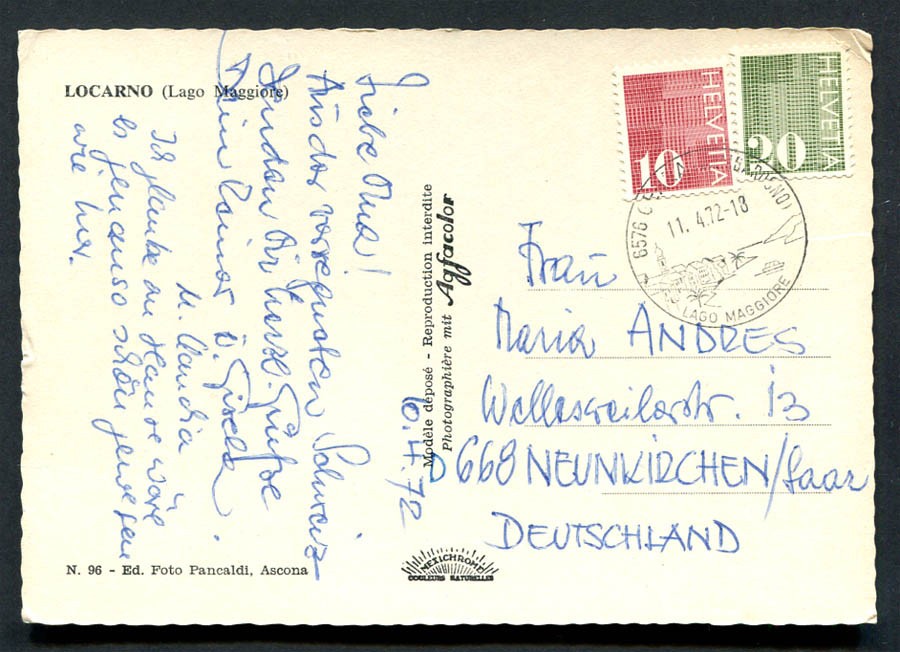 LOCARNO (Lago Maggiore)
Liebe Oma!
Aus der verregneten Schweiz
senden Dir herzl. Grüße
Dein Rainer u. Gisela.
u. Claudia
Ich glaube zu Hause wäre
es genauso schön gewesen
wie hier.
10.4.72
N. 96 - Ed. Foto Pancaldi, Ascona
Modèle déposé - Reproduction interdite
Photographière mit Agfacolor
MEXICHROME
COULEURS NATURELLES
10 HELVETIA
20 HELVETIA
6576
11.4.72-18
LAGO MAGGIORE
Frau
Maria ANDRES
Wellesweilerstr. 13
D 668 NEUNKIRCHEN/Saar
DEUTSCHLAND